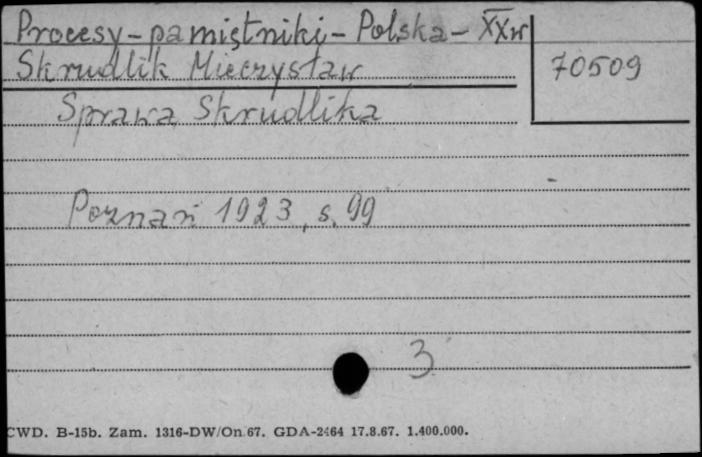 Procesy - pamiętniki - Polska - XXw
Skrudlik Mieczysław
70509
Sprawa Skrudlika
Poznań 1923, s. 99
3
CWD. B-15b. Zam. 1316-DW/On 67. GDA-2464 17.8.67. 1.400.000.